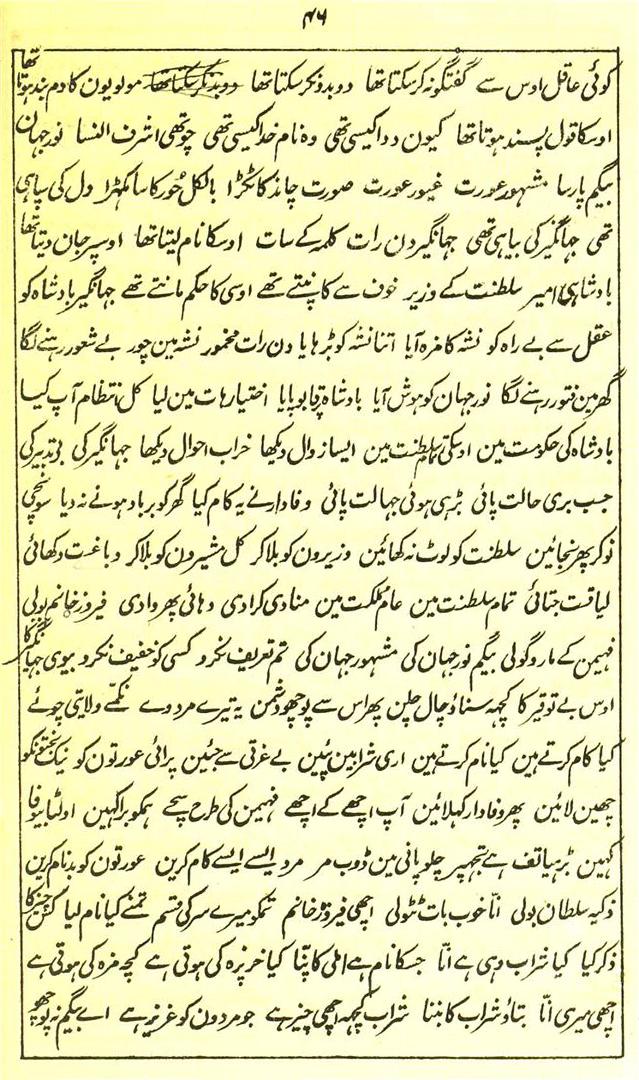 ۴۶
کوئی عاقل اوس سے گفتگو نہ کر سکتا تھا دو بدو ذکر سکتا تھا مولویون کا دم بند ہوتا تھا
اوسکا قول پسند ہوتا تھا کیون ددا کیسی تھی وہ نام خدا کیسی تھی چوتھی اشرف النسا نور جہان
بیگم پارسا مشہور عورت غیور عورت صورت چاند کا ٹکڑا بالکل حُور کا سا مکھڑا دل کی سپاہی
تھی جہانگیر کی بیاہی تھی جہانگیر دن رات کلمہ کے سات اوسکا نام لیتا تھا اوسپر جان دیتا تھا
بادشاہی امیر سلطنت کے وزیر خوف سے کانپتے تھے اوسی کا حکم مانتے تھے جہانگیر بادشاہ کو
عقل سے بے راہ کو نشہ کا مزہ آیا اتنا نشہ کو بڑہایا دن رات مخمور نشہ مین چور بے شعور رہنے لگا
گھر مین فتور رہنے لگا نور جہان کو ہوش آیا بادشاہ پر قابو پایا اختیار ہات مین لیا کل انتظام آپ کیا
بادشاہ کی حکومت مین اوسکی تمام سلطنت مین ایسا زوال دیکھا خراب احوال دیکھا جہانگیر کی بے تدبیر کی
جب بری حالت پائی بڑہی ہوئی جہالت پائی وفادار نے یہ کام کیا گھر کو برباد ہونے نہ دیا سونچی
نوکر پھر نجائین سلطنت کو لوٹ نہ کھائین وزیرون کو بلا کر کل مشیرون کو بلا کر دباغت دکھائی
لیاقت جتائی تمام سلطنت مین عام مملکت مین منادی کرا دی دہائی پھروا دی فیروزہ خانم بولی
فہیمن کے مارو گولی بیگم نور جہان کی مشہور جہان کی تم تعریف نکرو کسی کو خفیف نکرو بیوی جہانگیر کا
اوس بے توقیر کا کچہہ سناؤ چال چلن پھر اس سے پوچھو دشمن یہ تیرے مردوے نکمّے ولایتی چوئے
کیا کام کرتے ہین کیا نام کرتے ہین اری شرابین پیین بے غرتی سے جئین پرائی عورتون کو نیک بختونکو
چھین لائین پھر وفادار کہلائین آپ اچھے کے اچھے فہیمن کی طرح سچے ہمکو برا کہین اولٹا بیوفا
کہین بڑہیا تف ہے تجہپر چلو پانی مین ڈوب مر مرد ایسے ایسے کام کرین عورتون کو بدنام کرین
ذکیہ سلطان بولی انّا خوب بات ٹٹولی اچھی فیروزہ خانم تمکو میرے سر کی قسم تمنے کیا نام لیا کس چیز کا
ذکر کیا کیا شراب وہی ہے انّا جسکا نام ہے املی کا پنّا کیا خرپزہ کی ہوتی ہے کچہ مزہ کی ہوتی ہے
اچھی میری انّا بتاؤ شراب کا بننا شراب کچہہ اچھی چیز ہے جو مردون کو عزیز ہے اے بیگم نہ پوچھو